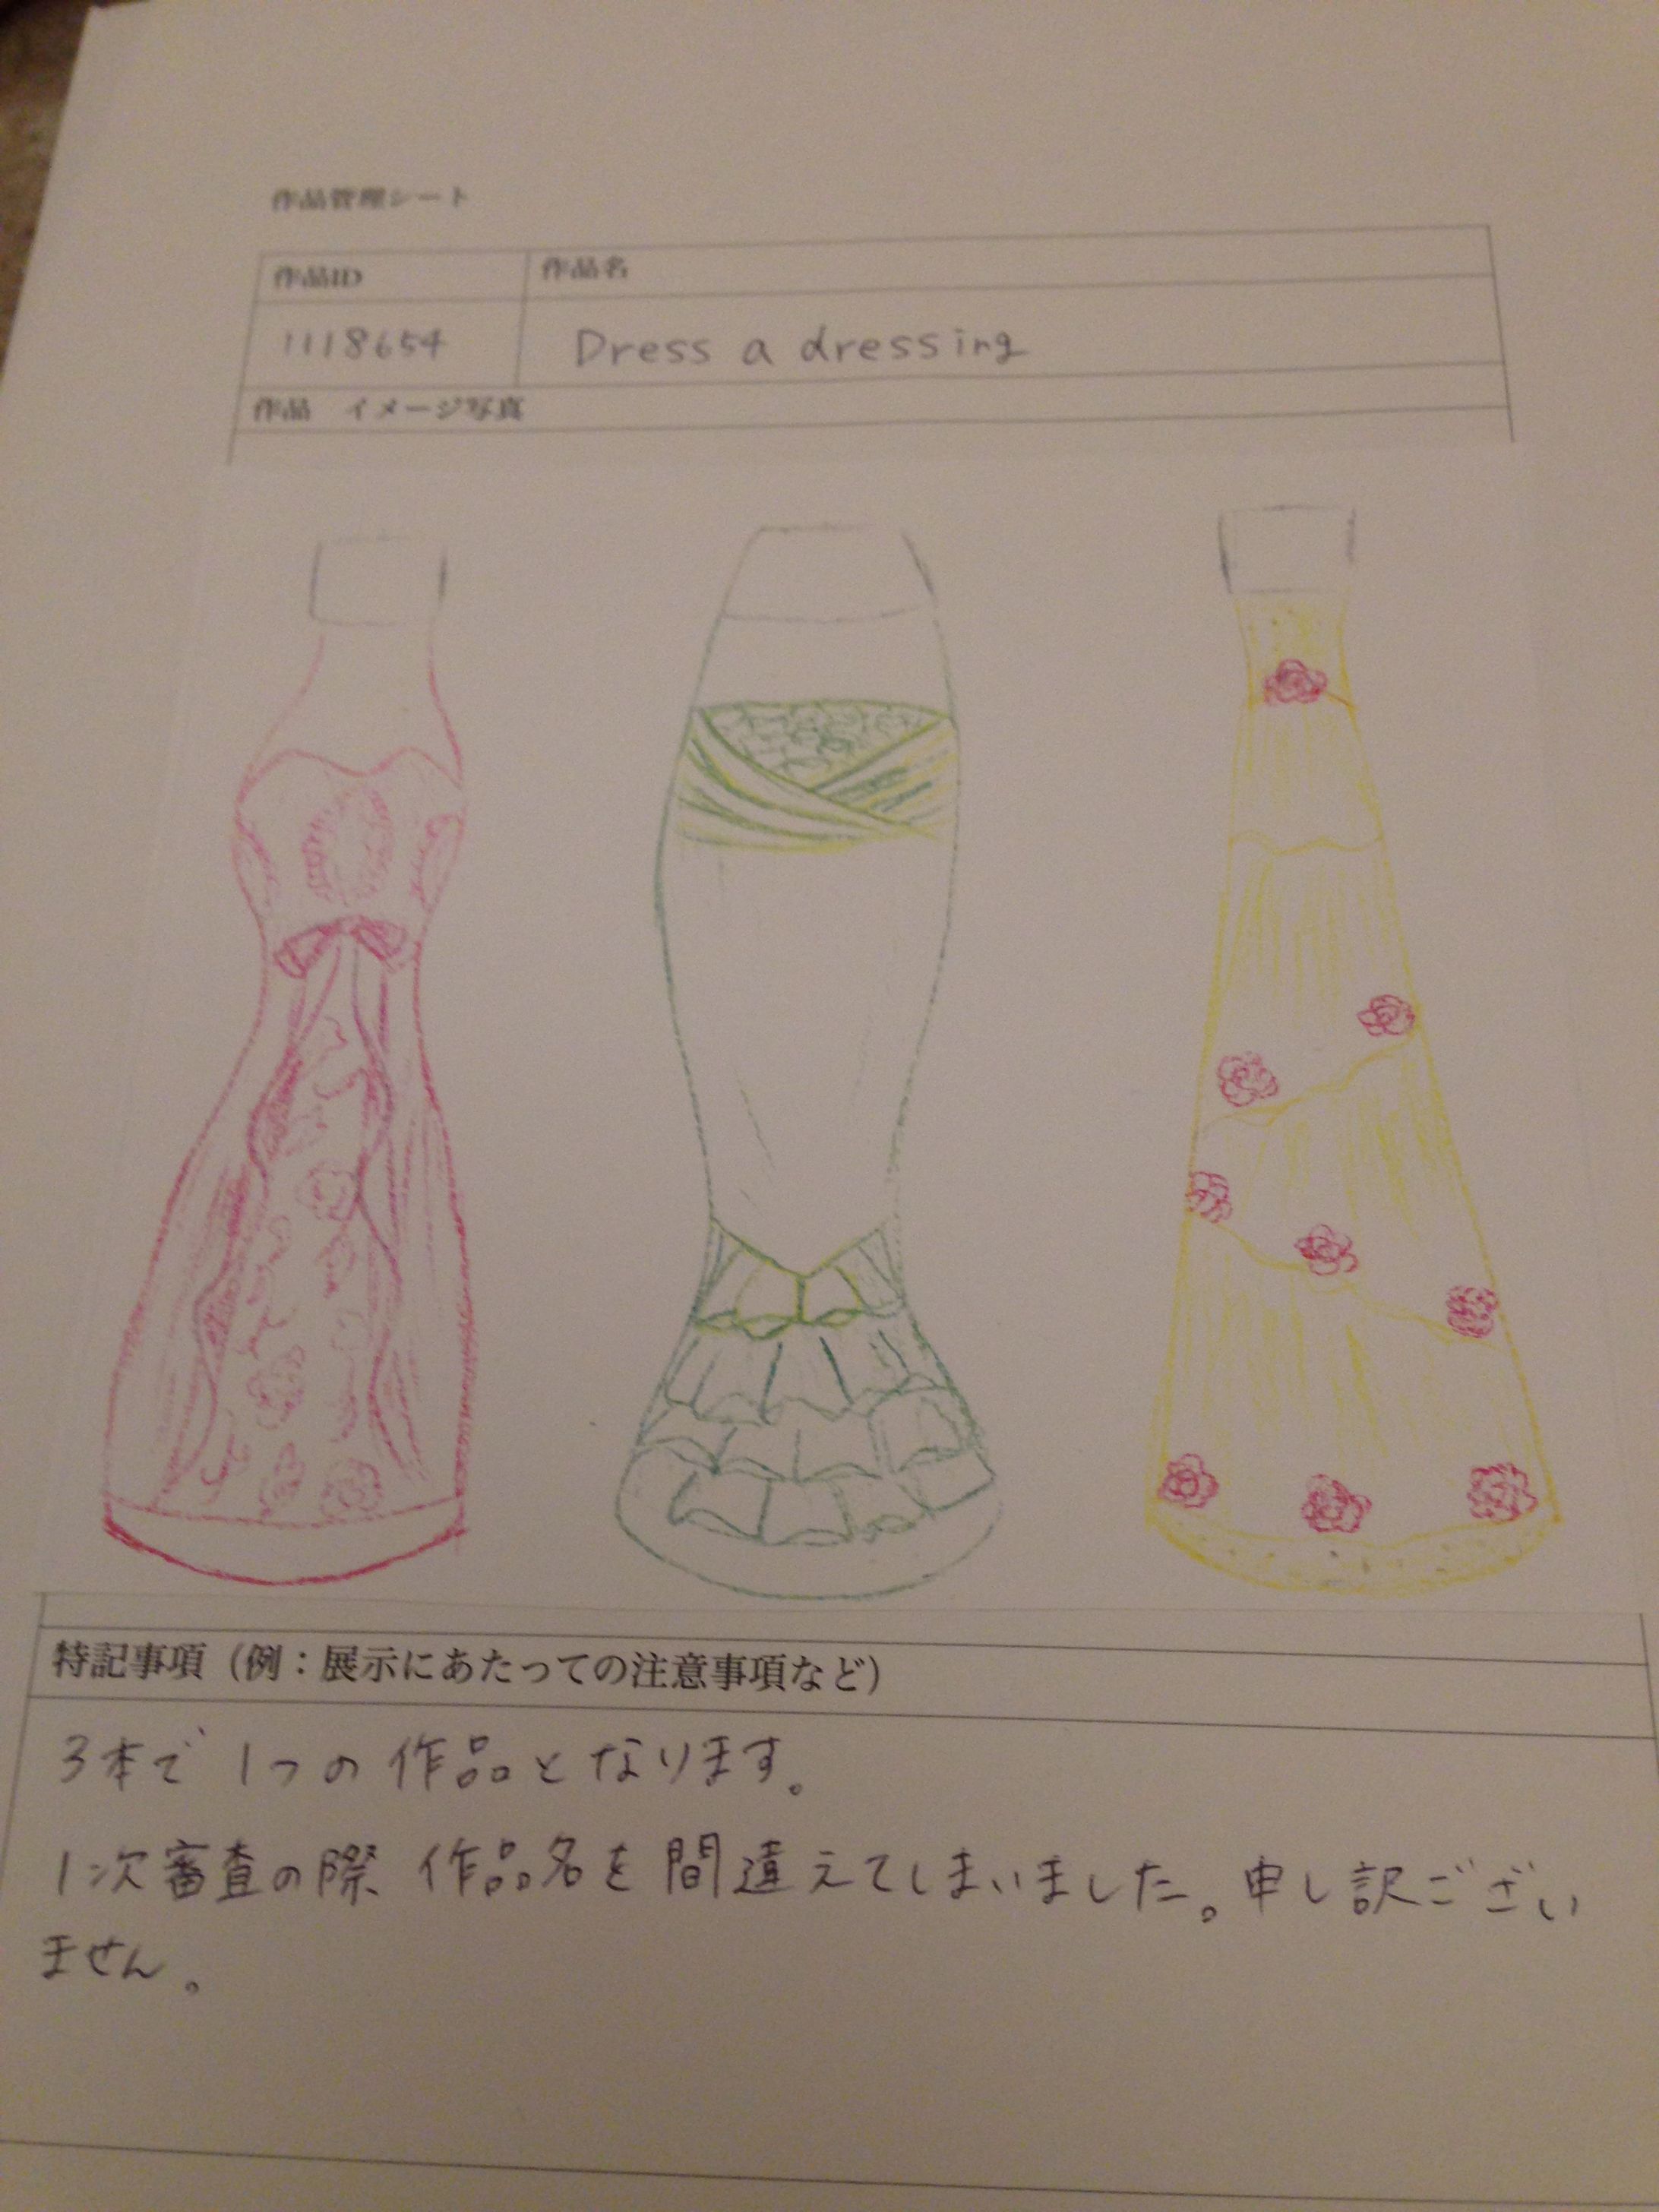 作品管理シート
作品ID
作品名
1118654
Dress a dressing
作品　イメージ写真
特記事項（例：展示にあたっての注意事項など）
3本で1つの作品となります。
1次審査の際 作品名を間違えてしまいました。申し訳ござい
ません。